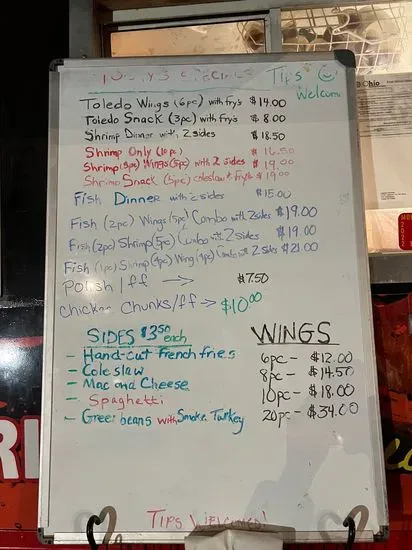 Today's Specials Tips
Welcome
Toledo Wings (6pc) with fry's $14.00
Toledo Snack (3pc) with fry's $8.00
Shrimp Dinner with 2 sides $18.50
Shrimp Only (10pc) $16.50
Shrimp (5pc) Wings (5pc) with 2 sides $19.00
Shrimp Snack (5pc) coleslaw & fry's $19.00
Fish Dinner with 2 sides $15.00
Fish (2pc) Wings (5pc) Combo with 2 sides $19.00
Fish (2pc) Shrimp (5pc) Combo with 2 sides $19.00
Fish (1pc) Shrimp (4pc) Wing (4pc) Combo with 2 sides $21.00
Polish/ff → $7.50
Chicken Chunks/ff → $10.00
SIDES $3.50 each
- Hand-cut French fries
- Coleslaw
- Mac and Cheese
- Spaghetti
- Green beans with Smoke Turkey
WINGS
6pc - $12.00
8pc - $14.50
10pc - $18.00
20pc - $34.00
TIPS WELCOMED!
Ohio
RI